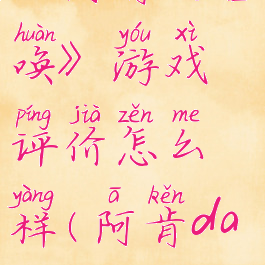 huàn yóu xì
唤》游戏
píng jià zěn me
评价怎么
yàng ā kěn
样(阿肯da